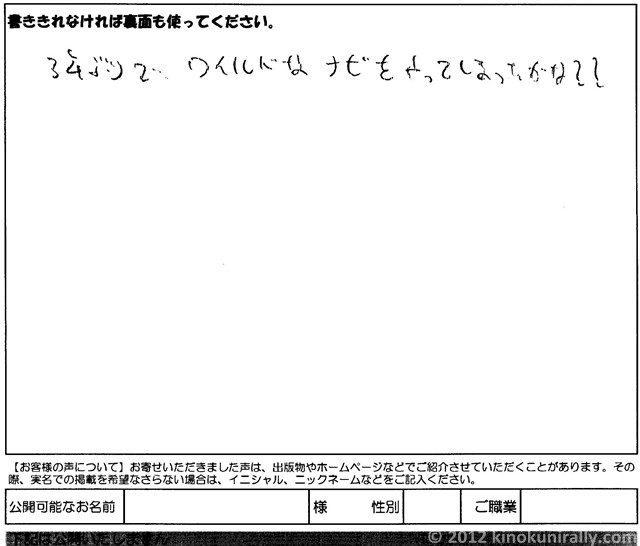 書ききれなければ裏面も使ってください。
3年ぶりで… ワイルドな ナビをやってしまったかな??
【お客様の声について】お寄せいただきました声は、出版物やホームページなどでご紹介させていただくことがあります。その
際、実名での掲載を希望なさらない場合は、イニシャル、ニックネームなどをご記入ください。
公開可能なお名前 様 性別 ご職業
下記は公開いたしません
© 2012 kinokunirally.com